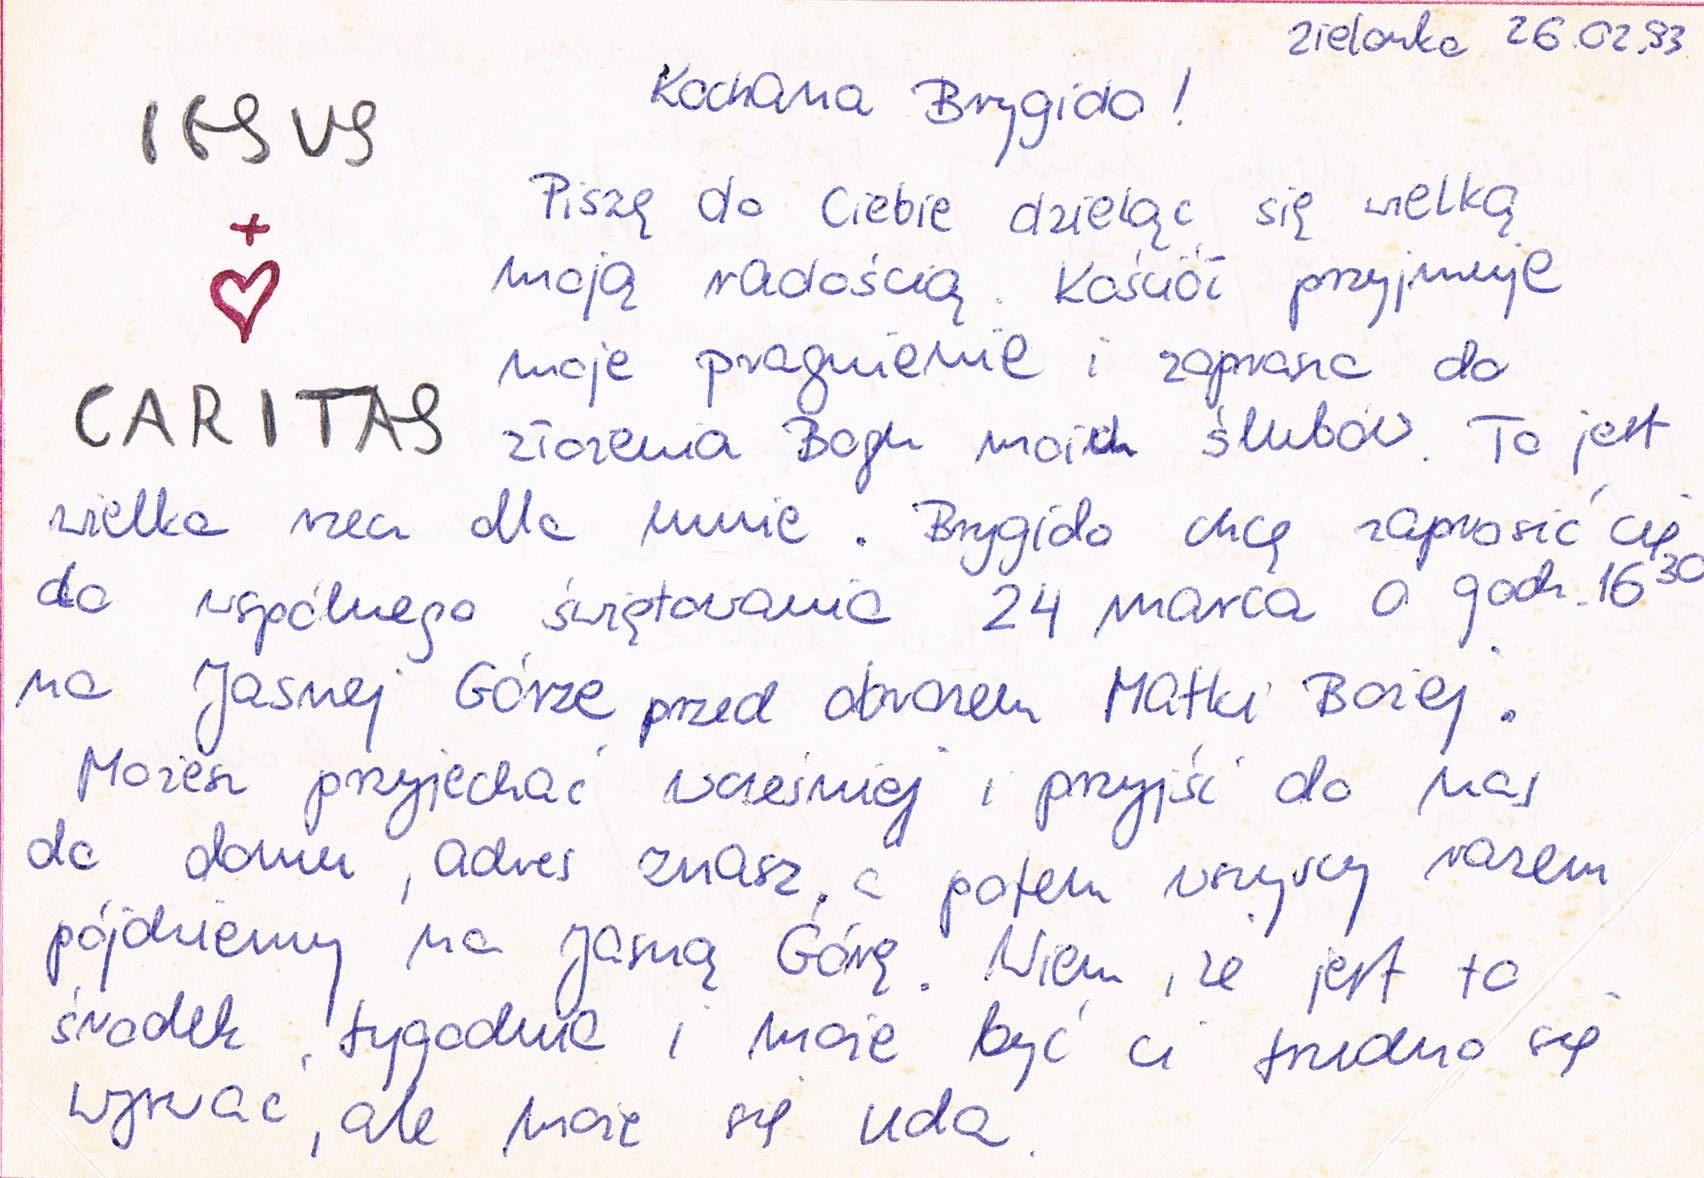 Zielonka 26.02.93
Kochana Brygido!
IESUS
+
CARITAS
Piszę do Ciebie dzieląc się wielką
moją radością. Kościół przyjmuje
moje pragnienie i zaprasza do
złożenia Bogu moich ślubów. To jest
wielka rzecz dla mnie. Brygido chcę zaprosić cię
do wspólnego świętowania 24 marca o godz. 16³⁰
na Jasnej Górze przed obrazem Matki Bożej.
Możesz przyjechać wcześniej i przyjść do nas
do domu, adres znasz, a potem wszyscy razem
pójdziemy na Jasną Górę. Wiem, że jest to
środek tygodnia i może być ci trudno się
wyrwać, ale może się uda.